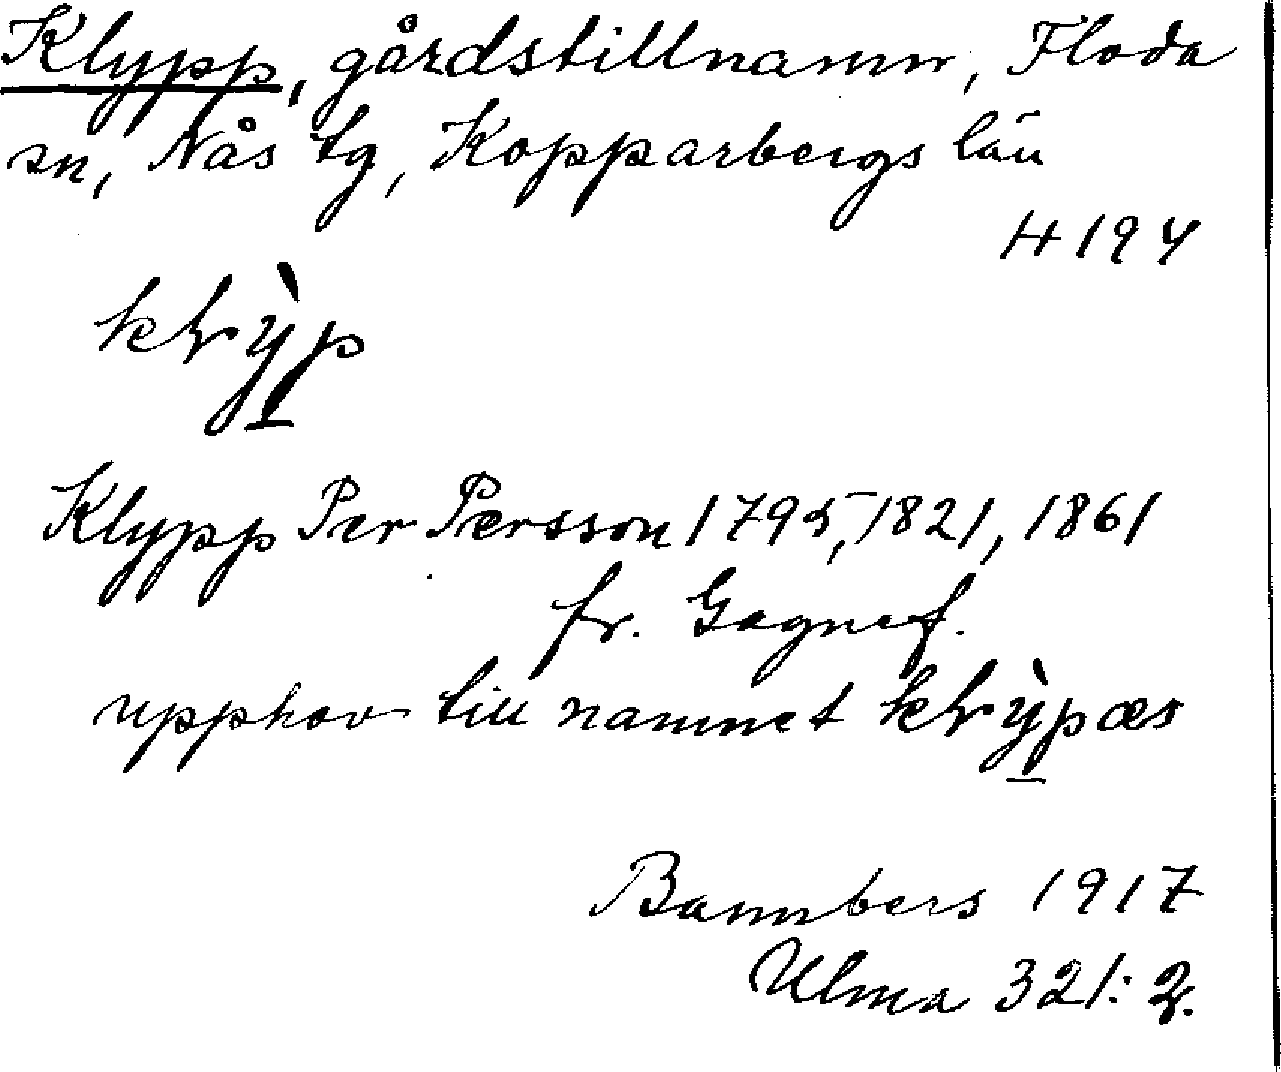 Klypp, gårdstillnamn, Floda
sn, Nås tg, Kopparbergs län
4194
klỳp
Klypp Per Persson 1795, 1821, 1861
fr. Gagnef.
upphov till namnet klỳpæs
Bannbers 1917
Ulma 321:2.